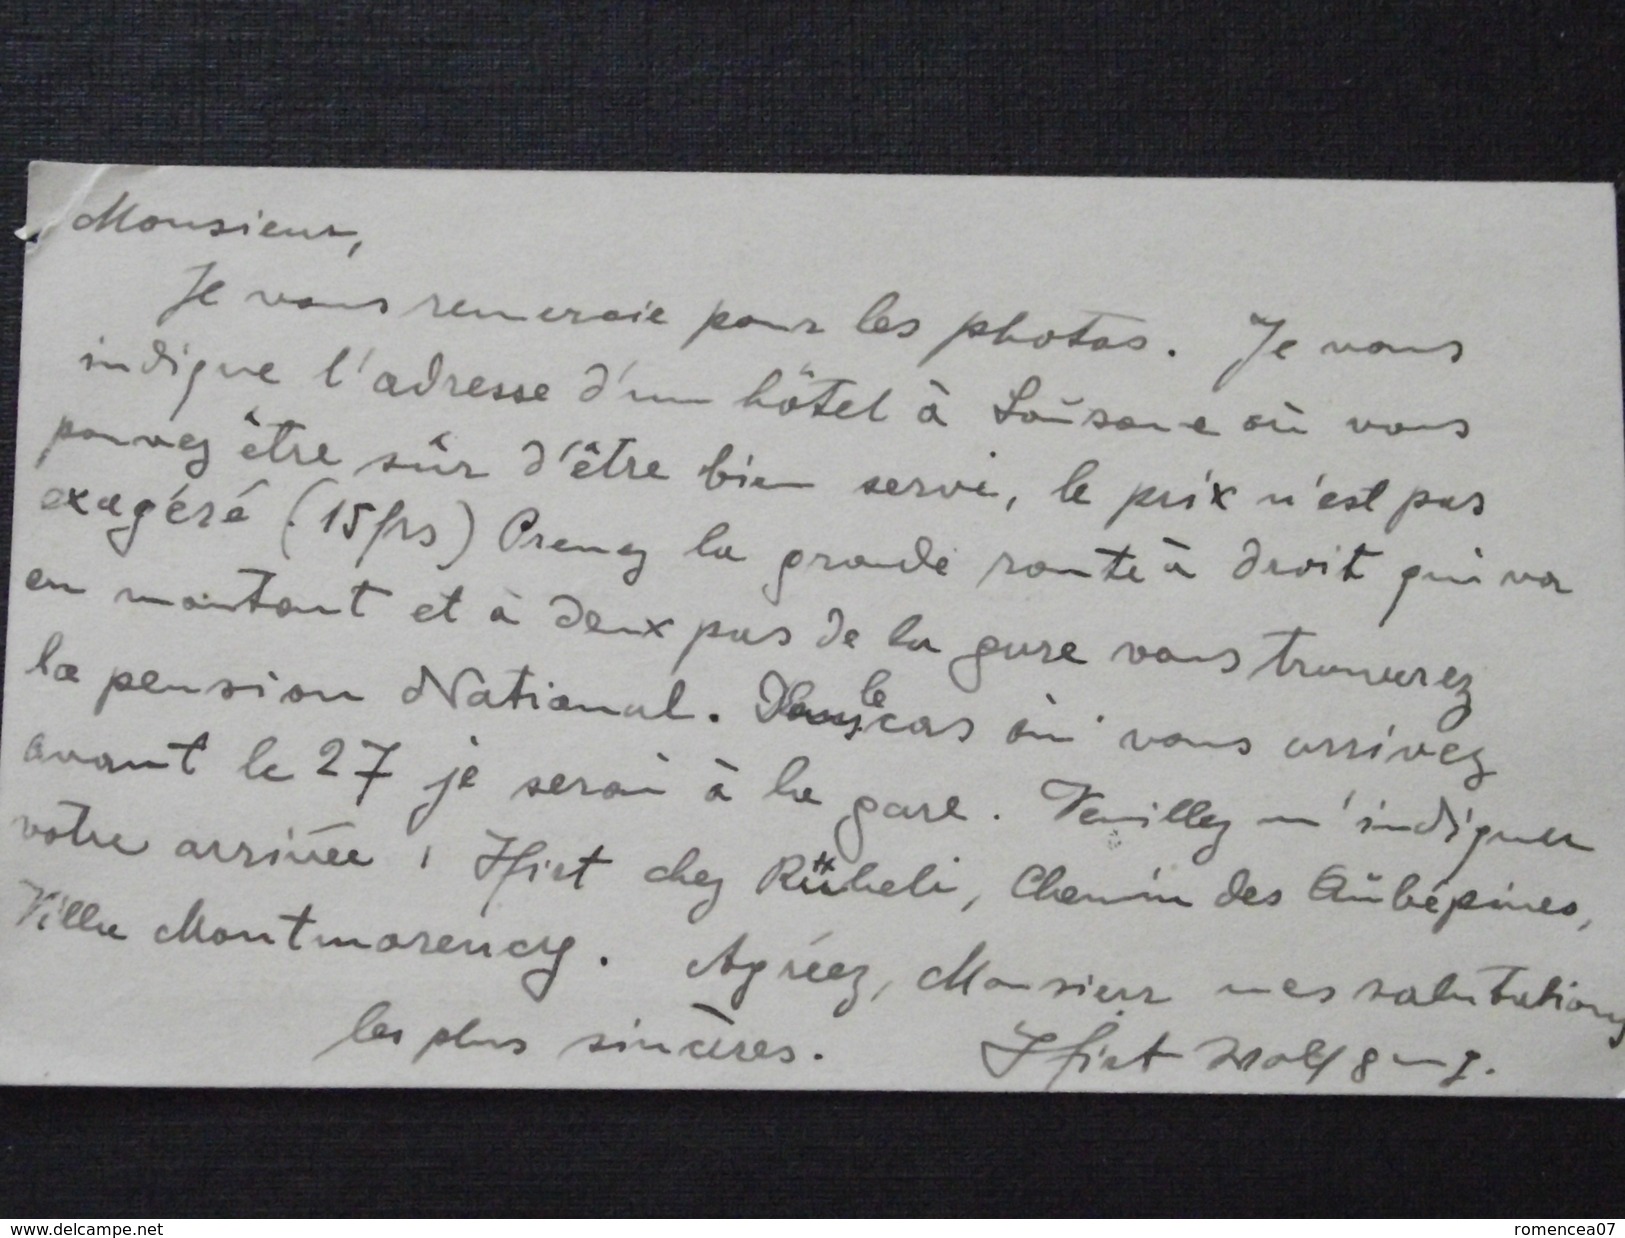 Monsieur,
Je vous remercie pour les photos. Je vous
indique l'adresse d'un hôtel à Laŭsane où vous
pouvez être sûr d'être bien servi, le prix n'est pas
exagéré (15frs) Prenez la grande route à droit qui va
en montant et à deux pas de la gare vous trouverez
la pension National. Dans le cas où vous arrivez
avant le 27 je serai à la gare. Veuillez m'indiquer
votre arrivée : chez Rübeli, Chemin des Aŭbépines,
Villa Montmorency. Agréez, Monsieur mes salutations
les plus sincères. Wolfgang.
www.delcampe.net
romencea07